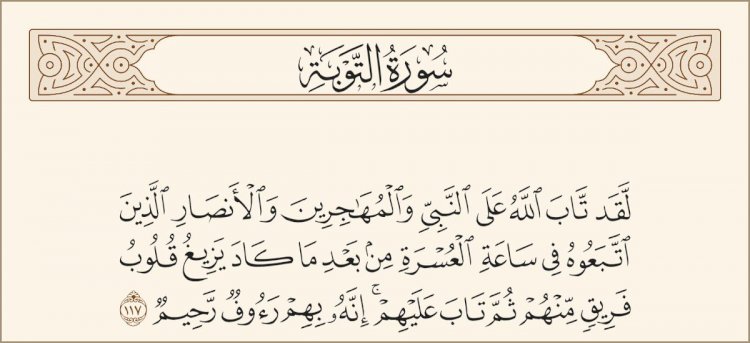 سُورَةُ التَّوْبَةِ
لَّقَد تَّابَ ٱللَّهُ عَلَى ٱلنَّبِىِّ وَٱلْمُهَـٰجِرِينَ وَٱلْأَنصَارِ ٱلَّذِينَ
ٱتَّبَعُوهُ فِى سَاعَةِ ٱلْعُسْرَةِ مِنۢ بَعْدِ مَا كَادَ يَزِيغُ قُلُوبُ
فَرِيقٍ مِّنْهُمْ ثُمَّ تَابَ عَلَيْهِمْ ۚ إِنَّهُۥ بِهِمْ رَءُوفٌ رَّحِيمٌ ١١٧